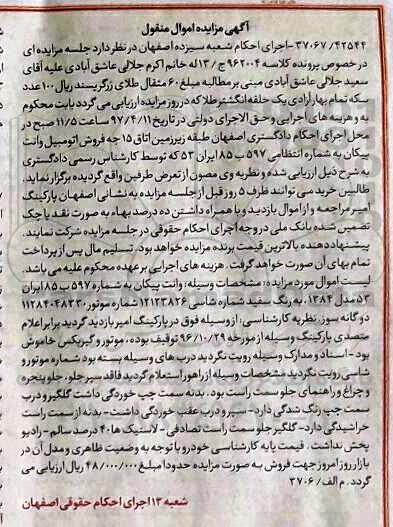 آگهی مزایده اموال منقول
۳۷۰۶۷/۴۲۵۴۴- اجرای احکام شعبه سیزده اصفهان در نظر دارد جلسه مزایده ای
در خصوص پرونده کلاسه ۹۶۲۰۰۴ ج / ۱۳ له خانم اکرم جلالی عاشق آبادی علیه آقای
سعید جلالی عاشق آبادی مبنی بر مطالبه مبلغ ۶۰ مثقال طلای زرگر پسند ریال ۱۰۰ عدد
سکه تمام بهار آزادی یک حلقه انگشتر طلا که در روز مزایده ارزیابی می گردد بابت محکوم
به و هزینه های اجرایی و حق الاجرای دولتی در تاریخ ۹۷/۴/۱۱ ساعت ۱۱/۵ صبح در
محل اجرای احکام دادگستری اصفهان طبقه زیرزمین اتاق ۱۵ جه فروش اتومبیل وانت
پیکان به شماره انتظامی ۵۹۷ ب ۸۵ ایران ۵۳ که توسط کارشناس رسمی دادگستری
به شرح ذیل ارزیابی شده و نظریه وی مصون از تعرض طرفین واقع گردیده برگزار نماید.
طالبین خرید می توانند ظرف ۵ روز قبل از جلسه مزایده به نشانی اصفهان پارکینگ
امیر مراجعه و از اموال بازدید و با همراه داشتن ده درصد بهاء به صورت نقد یا چک
تضمین شده بانک ملی در وجه اجرای احکام حقوقی در جلسه مزایده شرکت نمایند.
پیشنهاد دهنده بالاترین قیمت برنده مزایده خواهد بود. تسلیم مال پس از پرداخت
تمام بهای آن صورت خواهد گرفت. هزینه های اجرایی بر عهده محکوم علیه می باشد.
لیست اموال مورد مزایده: مشخصات وسیله: وانت پیکان به شماره ۵۹۷ ب ۸۵ ایران
۵۳ مدل ۱۳۸۴، به رنگ سفید شماره شاسی ۱۲۱۲۳۸۲۶ شماره موتور ۱۱۲۸۴۰۴۸۳۳۰
دوگانه سوز. نظریه کارشناسی: از وسیله فوق در پارکینگ امیر بازدید گردید برابر اعلام
متصدی پارکینگ وسیله از مورخه ۹۶/۱۰/۲۹ توقیف بوده، موتور و گیربکس خاموش
بود - اسناد و مدارک وسیله رویت نگردید درب های وسیله بسته بود شماره موتور و
شاسی رویت نگردید مشخصات وسیله از راهور استعلام گردید فاقد سپر جلو، جلو پنجره
و چراغ و راهنمای جلو سمت راست بود. بدنه سمت چپ خوردگی داشت گلگیر و درب
سمت چپ رنگ شدگی دارد - سپر و درب عقب خوردگی داشت - بدنه از سمت راست
خراشیدگی دارد - گلگیر جلو سمت راست تصادفی - لاستیک ها ۴۰ درصد سالم - رادیو
پخش نداشت. قیمت پایه کارشناسی خودرو با توجه به وضعیت ظاهری و مدل آن در
بازار روز امروز جهت فروش به صورت مزایده حدودا مبلغ ۴۸/۰۰۰/۰۰۰ ریال ارزیابی می
گردد. م الف/ ۳۷۰۶
شعبه ۱۳ اجرای احکام حقوقی اصفهان